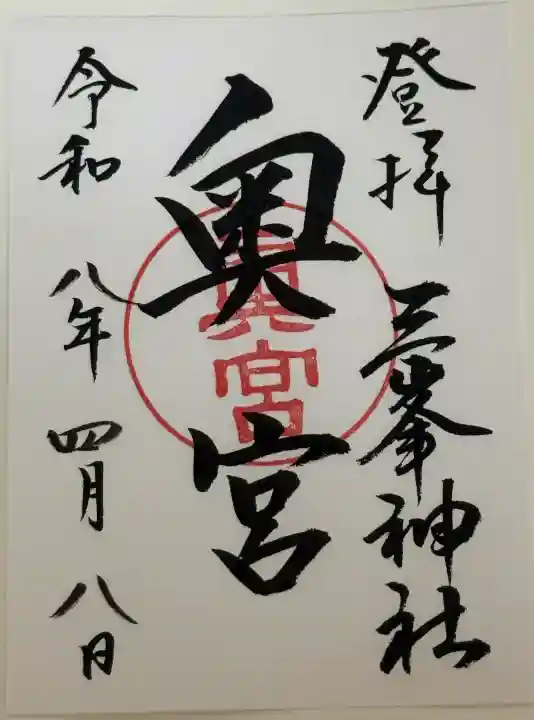 登拝 三峯神社
奥宮
奥宮
令和 八年 四月 八日